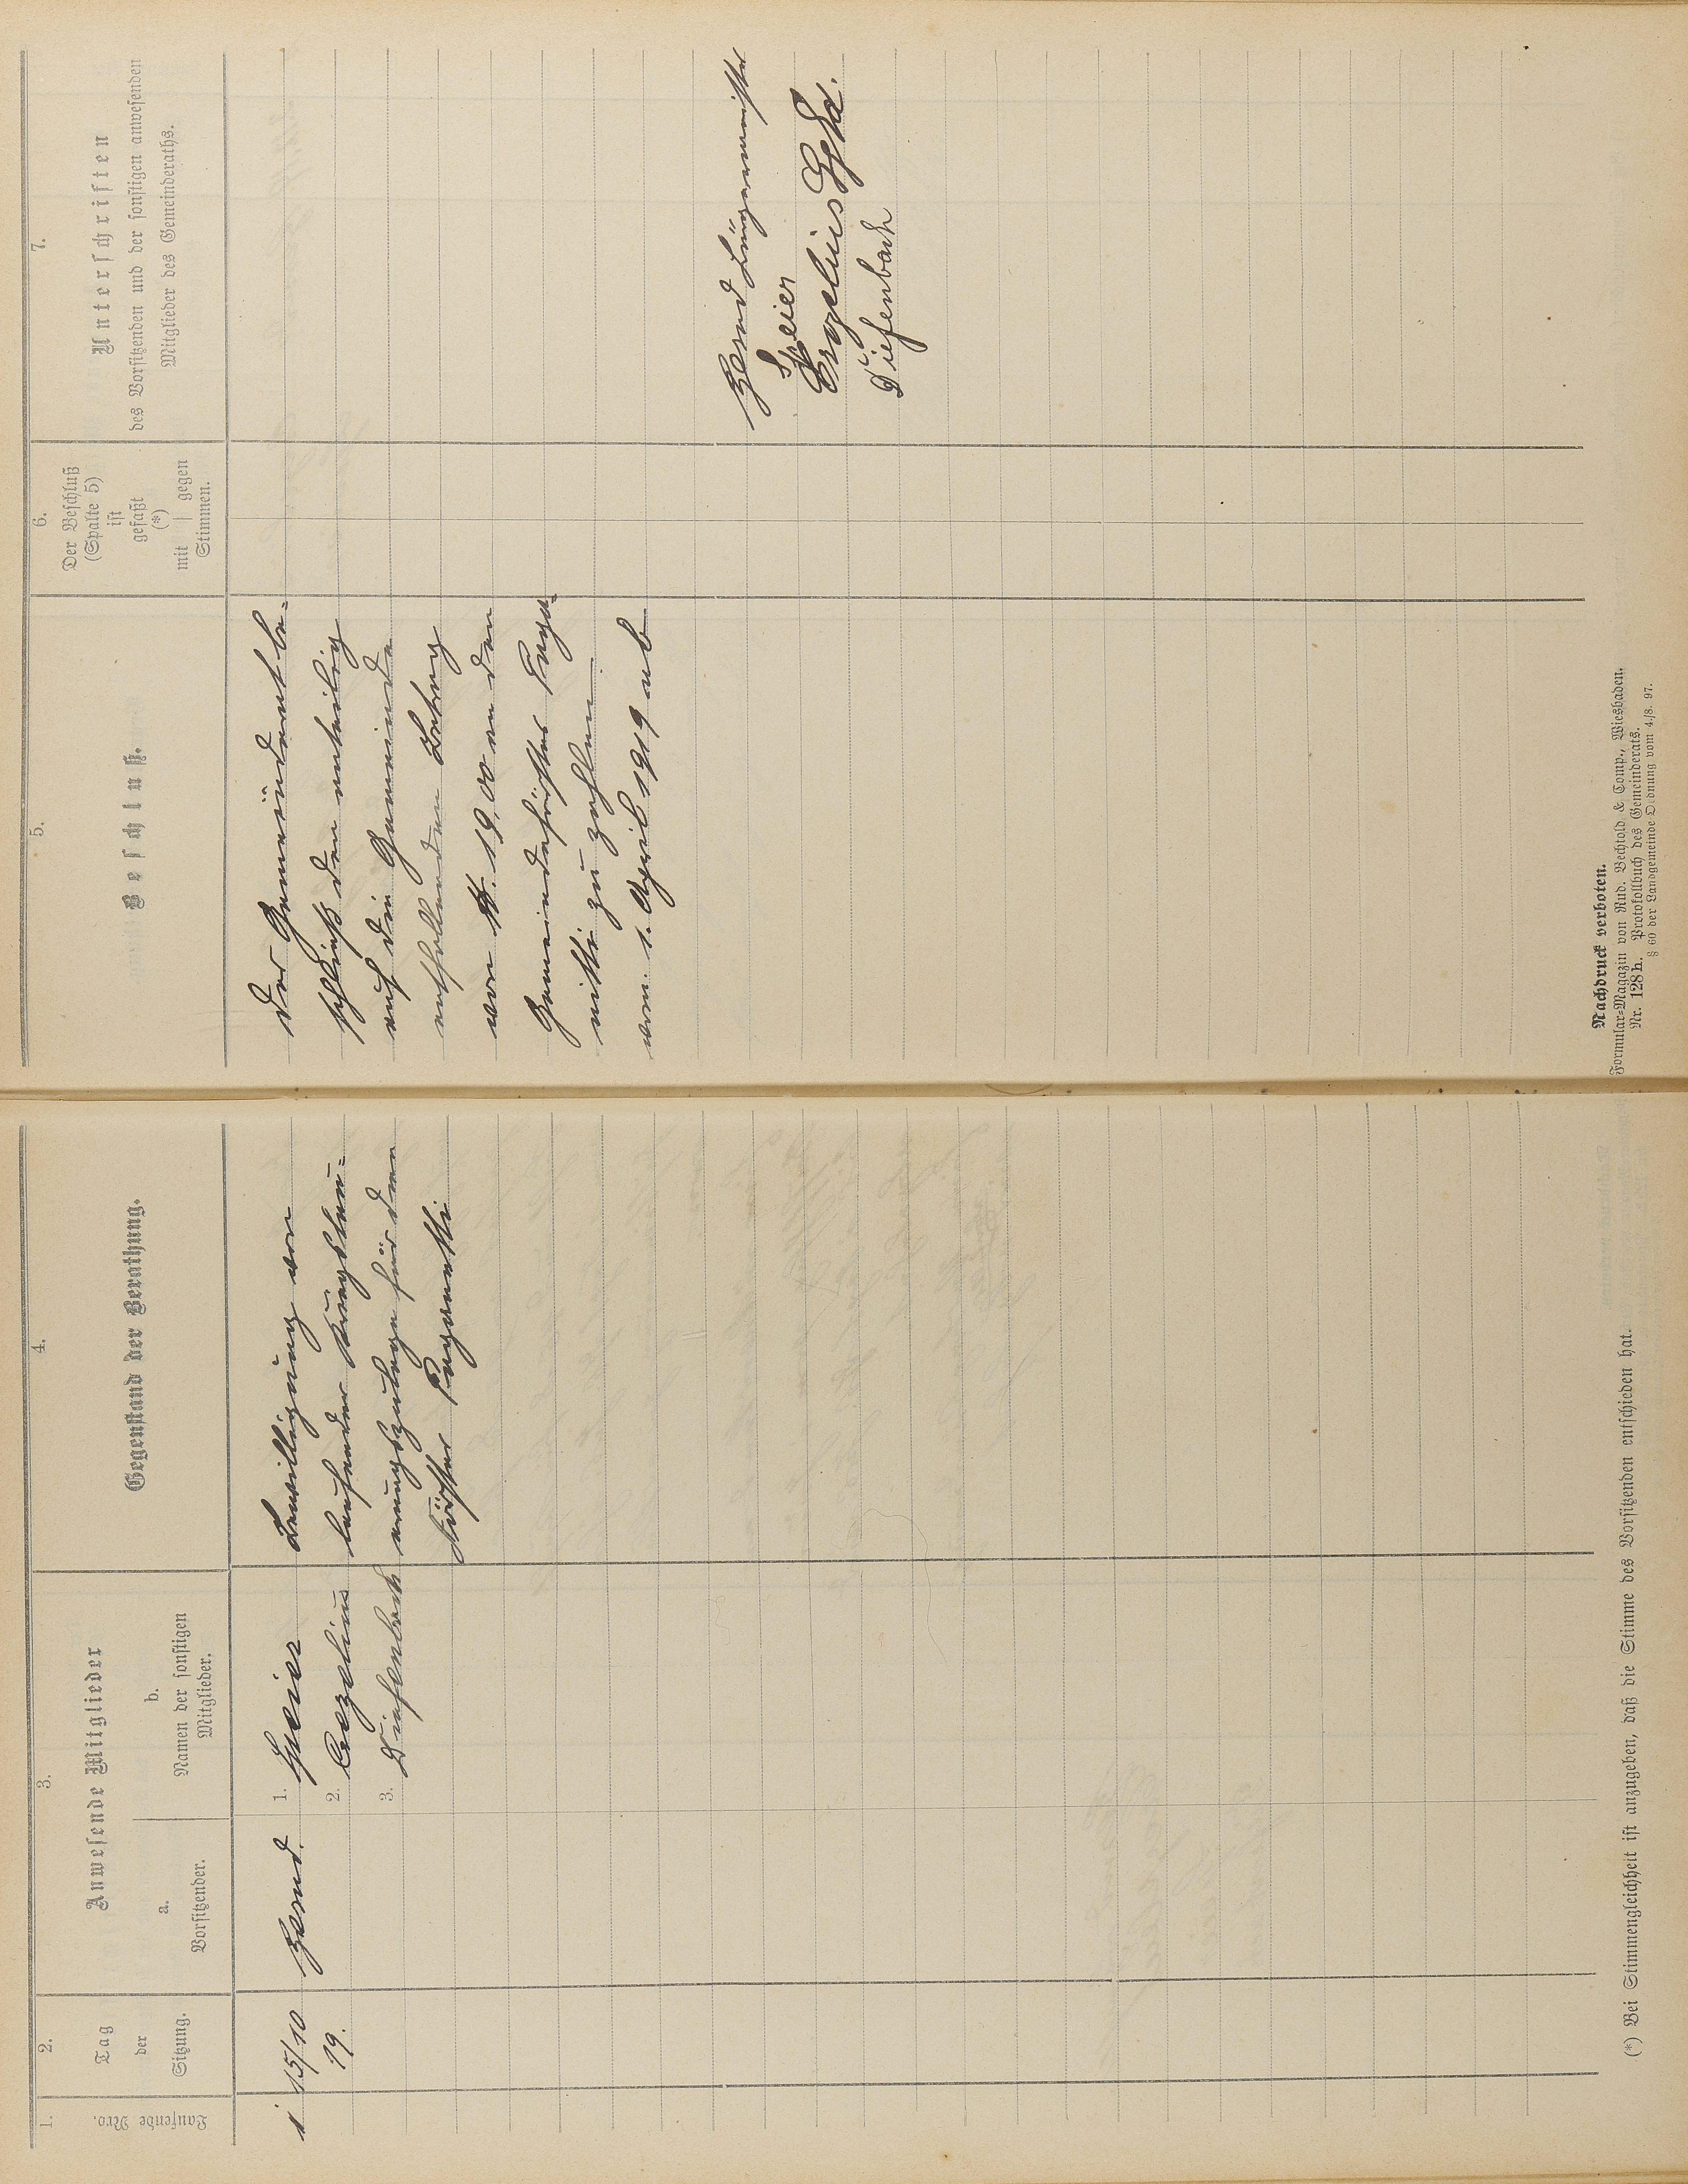 1.
Laufende Nro.
2.
Tag
der
Sitzung.
3.
Anwesende Mitglieder
a.
Vorsitzender.
b.
Namen der sonstigen
Mitglieder.
4.
Gegenstand der Berathung.
1
15/10
19.
1. Speier
2.
3. Diefenbach
Bewilligung von
laufender Kriegsteu-
erungszulage für den
Förster
(*) Bei Stimmengleichheit ist anzugeben, daß die Stimme des Vorsitzenden entschieden hat.
5.
Beschluß.
6.
Der Beschluß
(Spalte 5)
ist
gefaßt
(*)
mit | gegen
Stimmen.
7.
Unterschriften
des Vorsitzenden und der sonstigen anwesenden
Mitglieder des Gemeinderaths.
Der Gemeinderat be-
schließt den anteilig
auf die Gemeinde
entfallenden Betrag
von M. 19,00 an den
Gemeindeförster
zu zahlen
vom 1. April 1919 ab
Bürgermeister
Speier
Diefenbach
Nachdruck verboten.
Formular-Magazin von Rud. Bechtold & Comp., Wiesbaden.
Nr. 128h. Protokollbuch des Gemeinderats.
§ 60 der Landgemeinde Ordnung vom 4/8. 97.